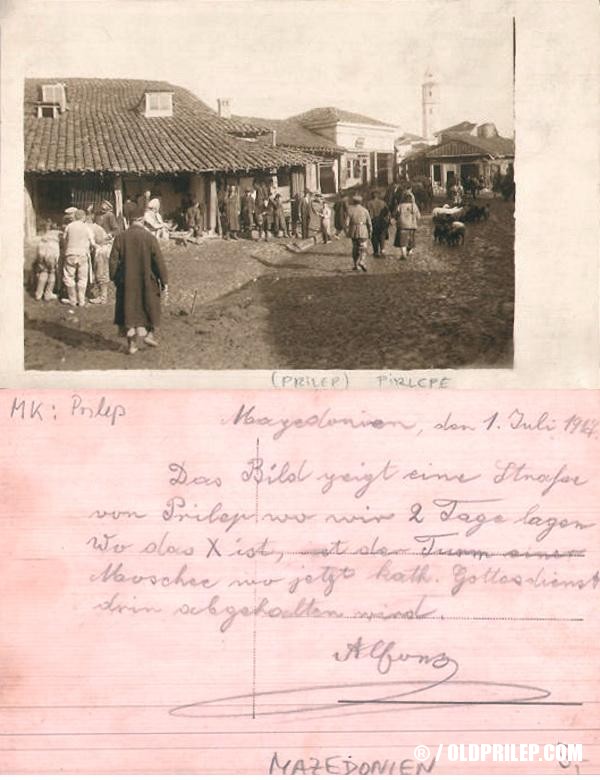 (PRILEP) PİRLEPE
MK: Prilep
Mazedonien, den 1. Juli 1917.
Das Bild zeigt eine Straße
von Prilep, wo wir 2 Tage lagen
Wo das X ist, ist der Turm einer
Moschee wo jetzt kath. Gottesdienst
drin abgehalten wird.
Alfons
MAZEDONIEN
® / OLDPRILEP.COM